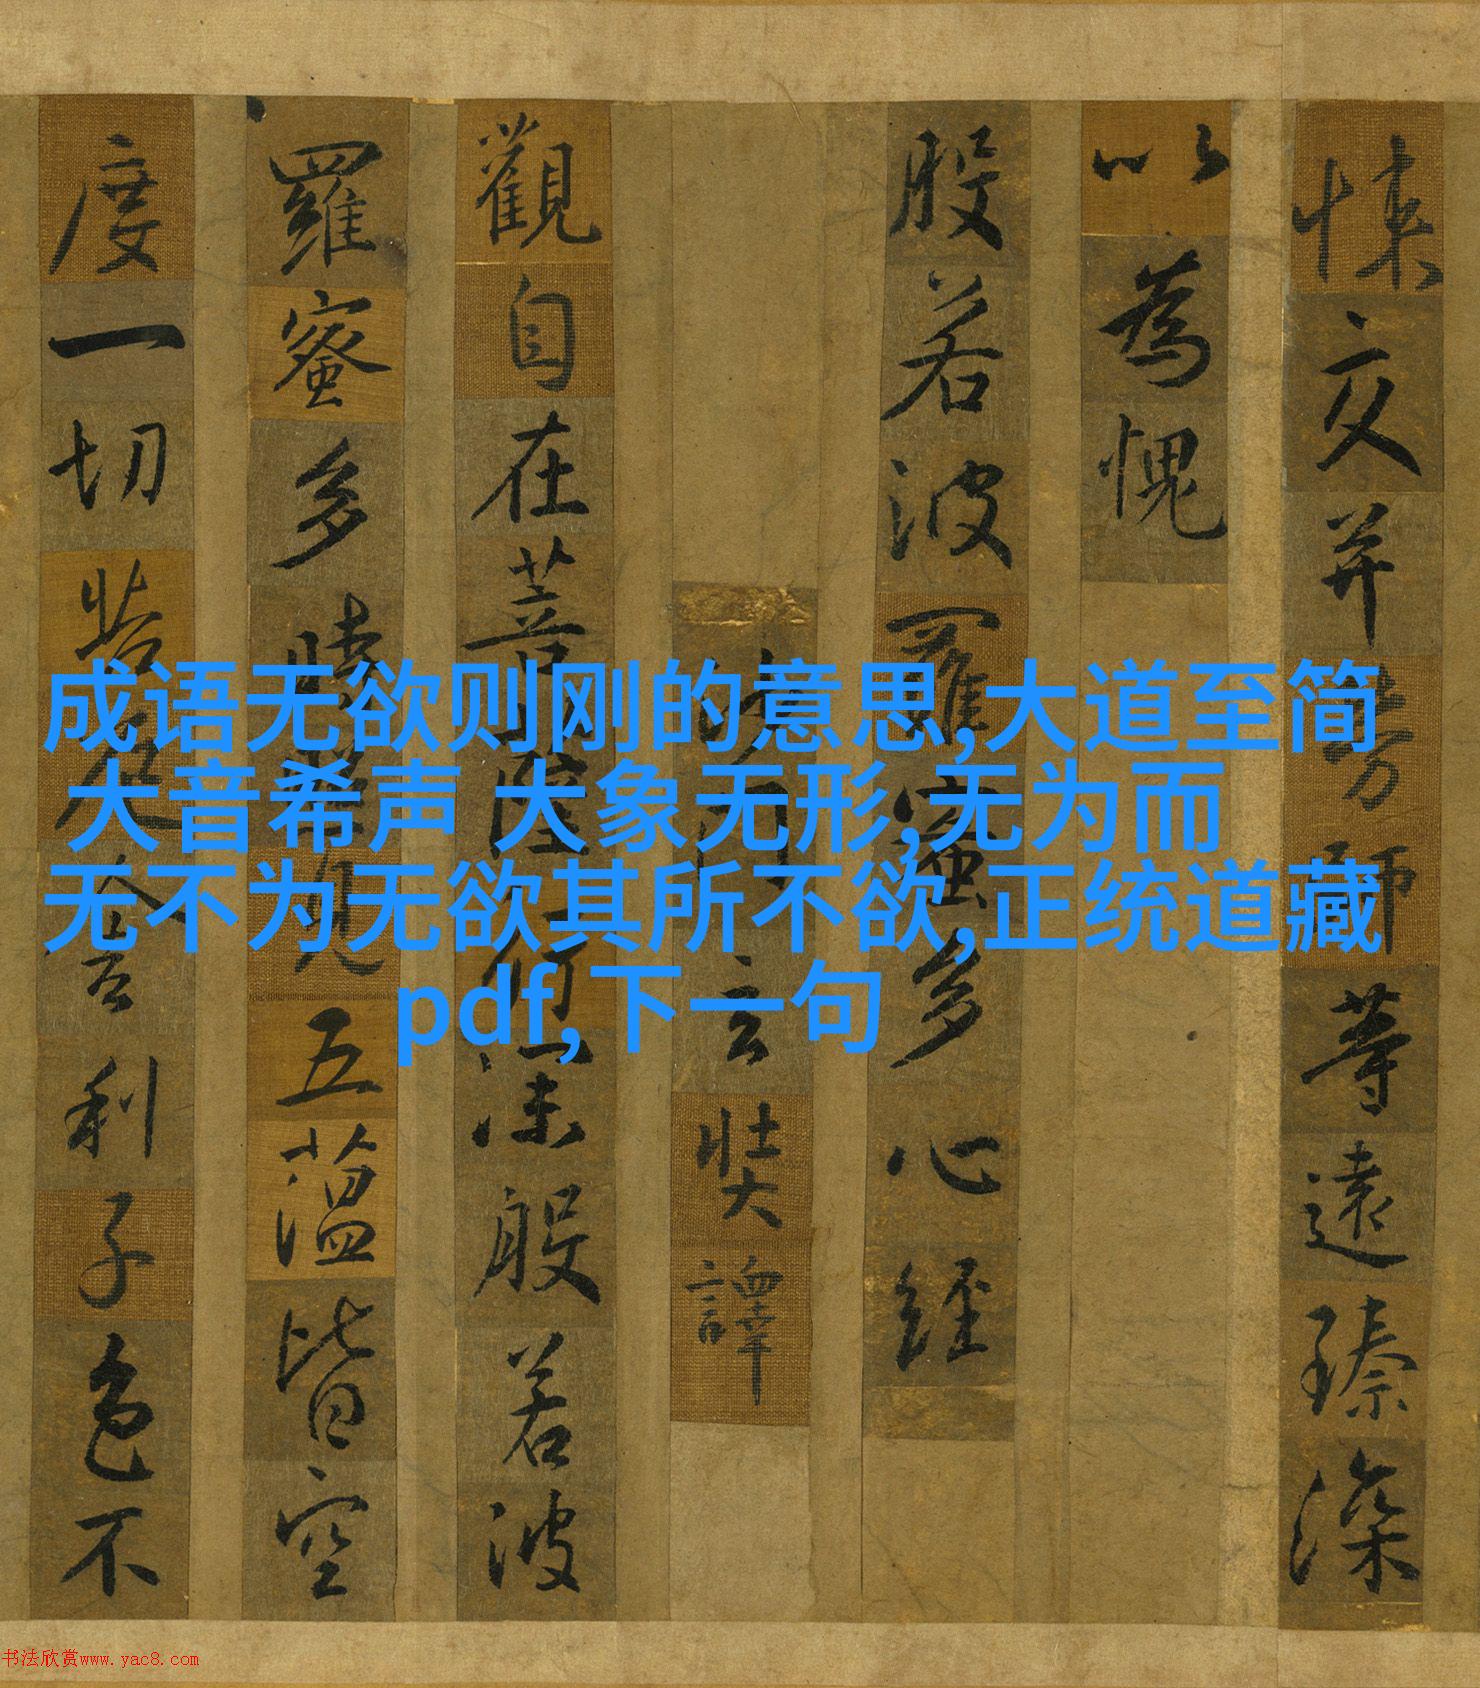 悚交并勞師等遠臻深
以為愧
般若波羅蜜多心經
沙門玄奘譯
觀自在菩薩行深般若波
羅蜜多時照見五蘊皆空
度一切苦厄舍利子色不
成语无欲则刚的意思,大道至简
大音希声 大象无形,无为而
无不为无欲其所不欲,正统道藏
pdf,下一句
书法欣赏www.yac8.com